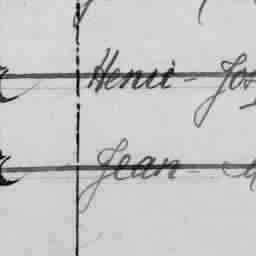 Henri - Jos
Jean - M